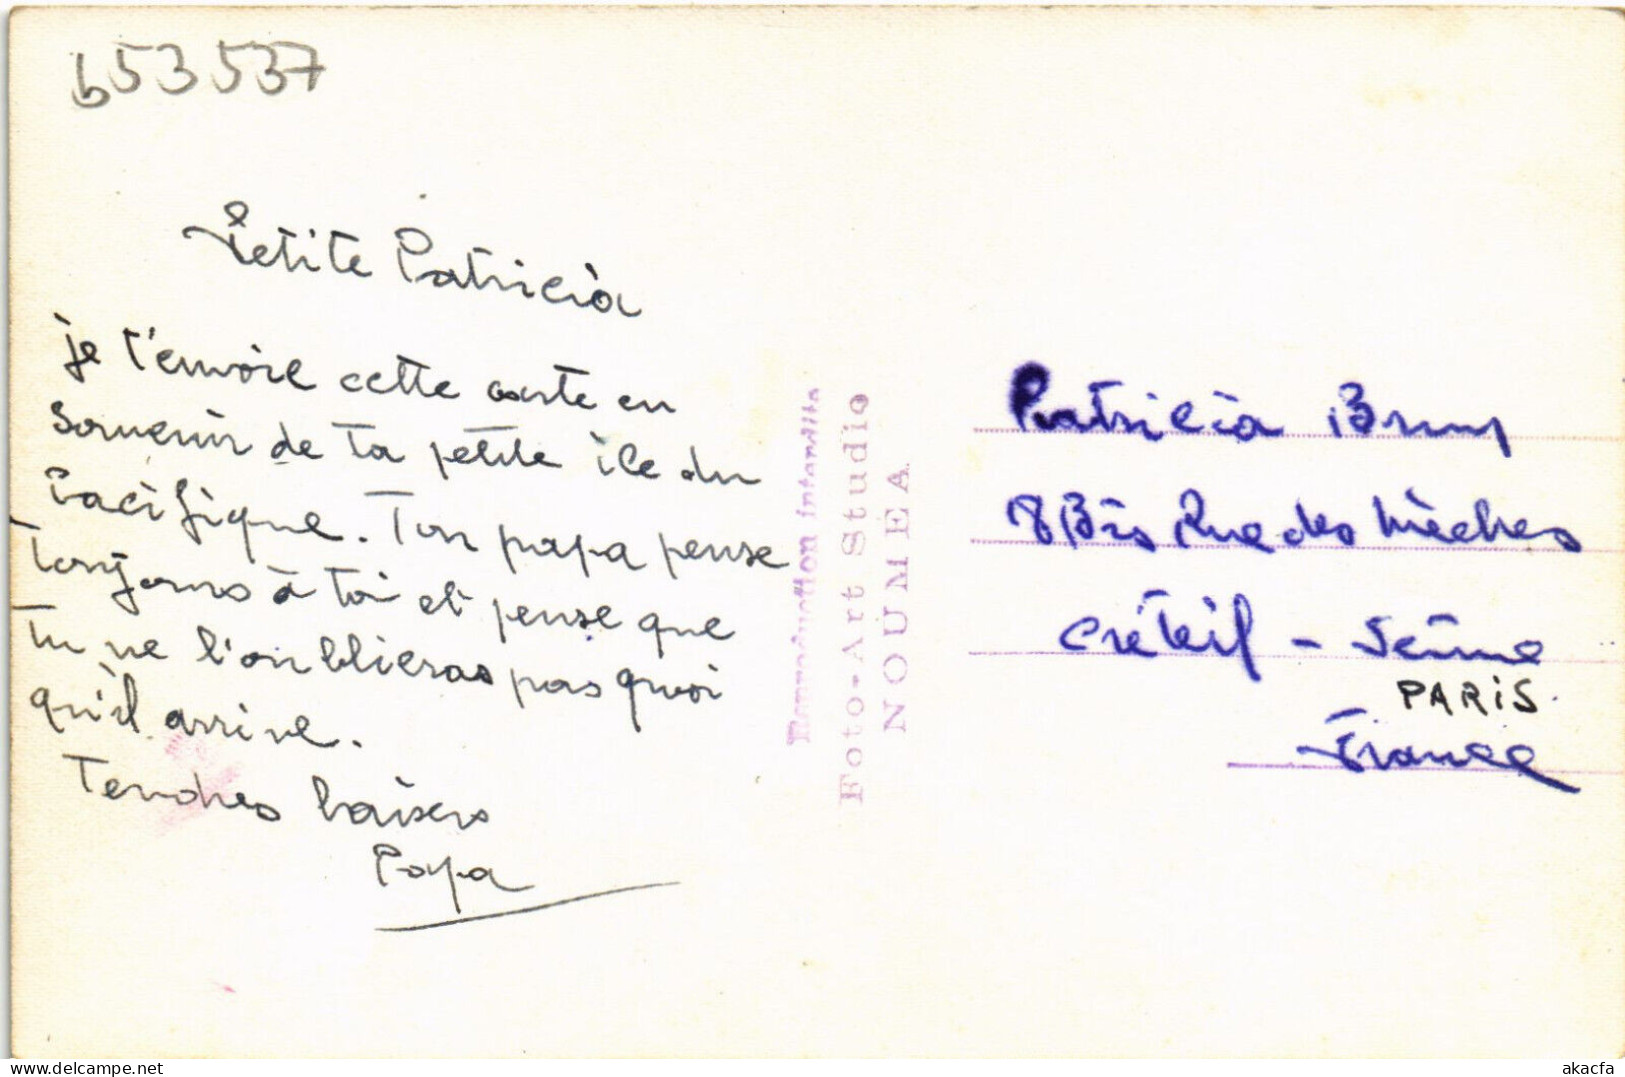 b53537
Petite Patricia
je t'envoie cette carte en
souvenir de ta petite île du
Pacifique. Ton papa pense
toujours à toi et pense que
tu ne l'oublieras pas quoi
qu'il arrive.
Tendres baisers
Papa
Reproduction interdite
Foto-Art Studio
NOUMEA
Patricia
8 Bis Rue des Mèches
Créteil - Seine
PARIS
France
delcampe.net
akacfa